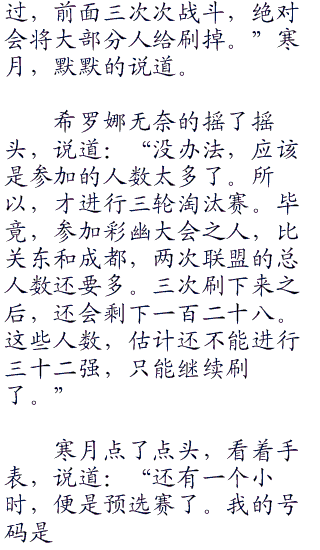 过，前面三次次战斗，绝对
会将大部分人给刷掉。”寒
月，默默的说道。
希罗娜无奈的摇了摇
头，说道：“没办法，应该
是参加的人数太多了。所
以，才进行三轮淘汰赛。毕
竟，参加彩幽大会之人，比
关东和成都，两次联盟的总
人数还要多。三次刷下来之
后，还会剩下一百二十八。
这些人数，估计还不能进行
三十二强，只能继续刷
了。”
寒月点了点头，看着手
表，说道：“还有一个小
时，便是预选赛了。我的号
码是